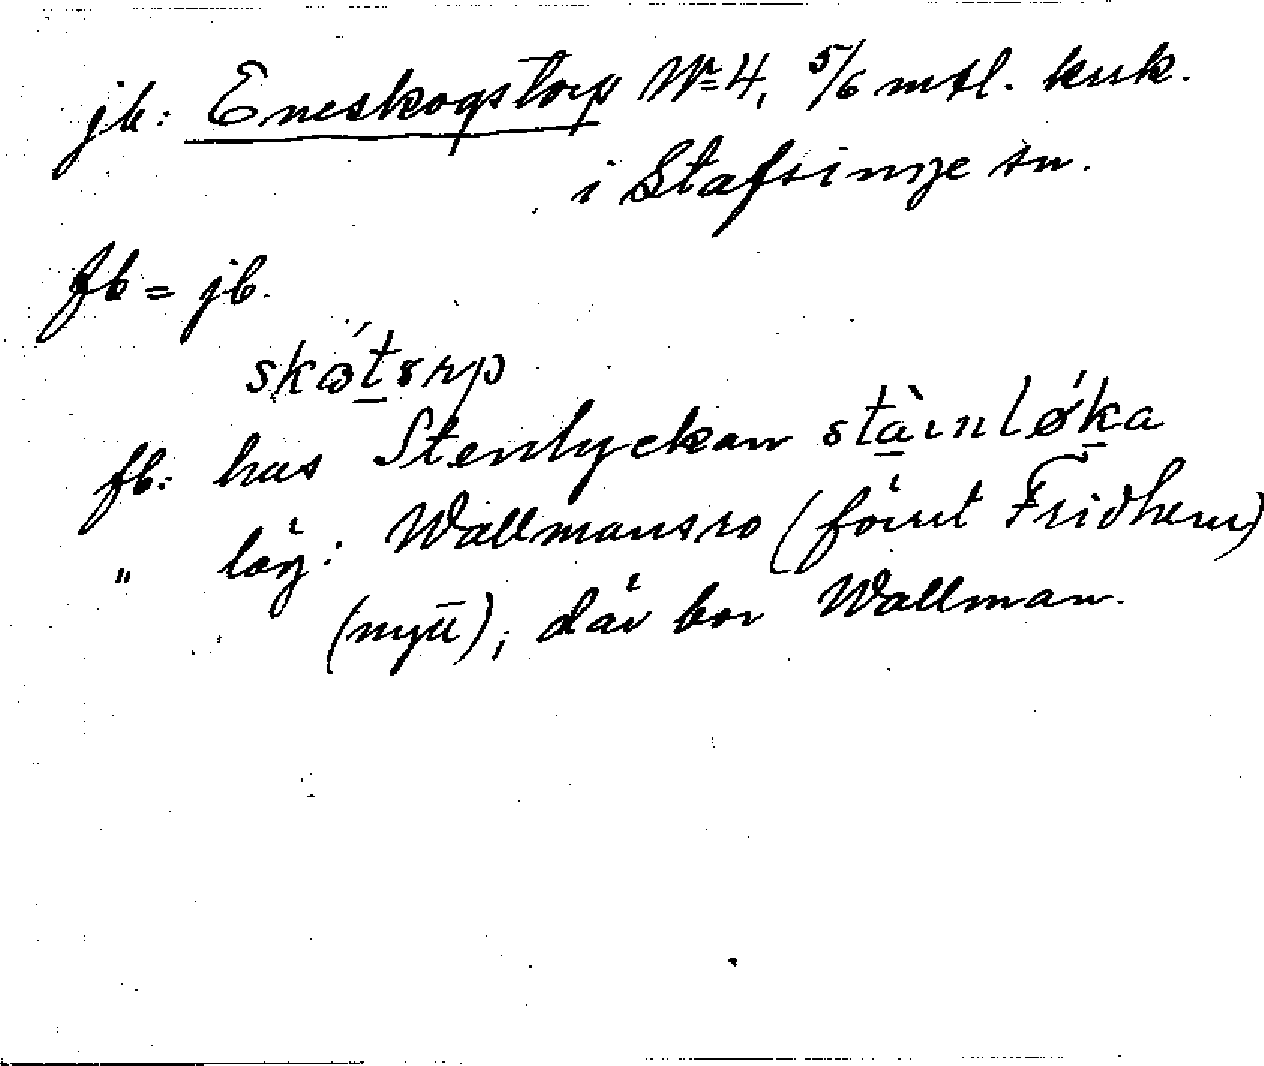 jb: Eneskogstorp No 4, 5/6 mtl. kuk.
i Stafsinge sn.
fb = jb.
skótorp
fb: hus Stenlyckan
" läg: Wallmansro (förut Fridhem)
(nytt), där bor Wallman.